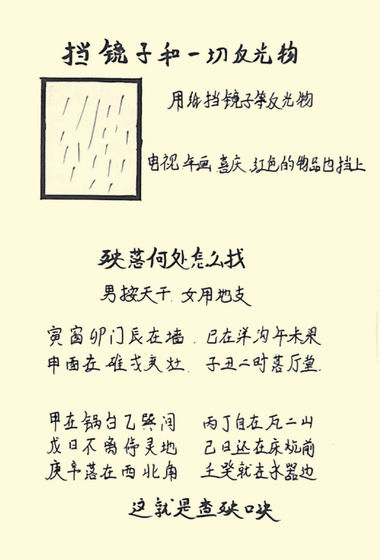 挡镜子和一切反光物
用纸挡镜子等反光物
电视 年画 喜庆 红色的物品也挡上
殃落何处怎么找
男按天干 女用地支
寅窗卯门辰在墙 巳在洋沟午未梁
申酉在碓戌亥灶 子丑二时落厅堂
甲在锅台乙 丙丁自在瓦二山
戊日不离停灵地 己日还在床炕前
庚辛落在西北角 壬癸就在水器边
这就是查殃口诀